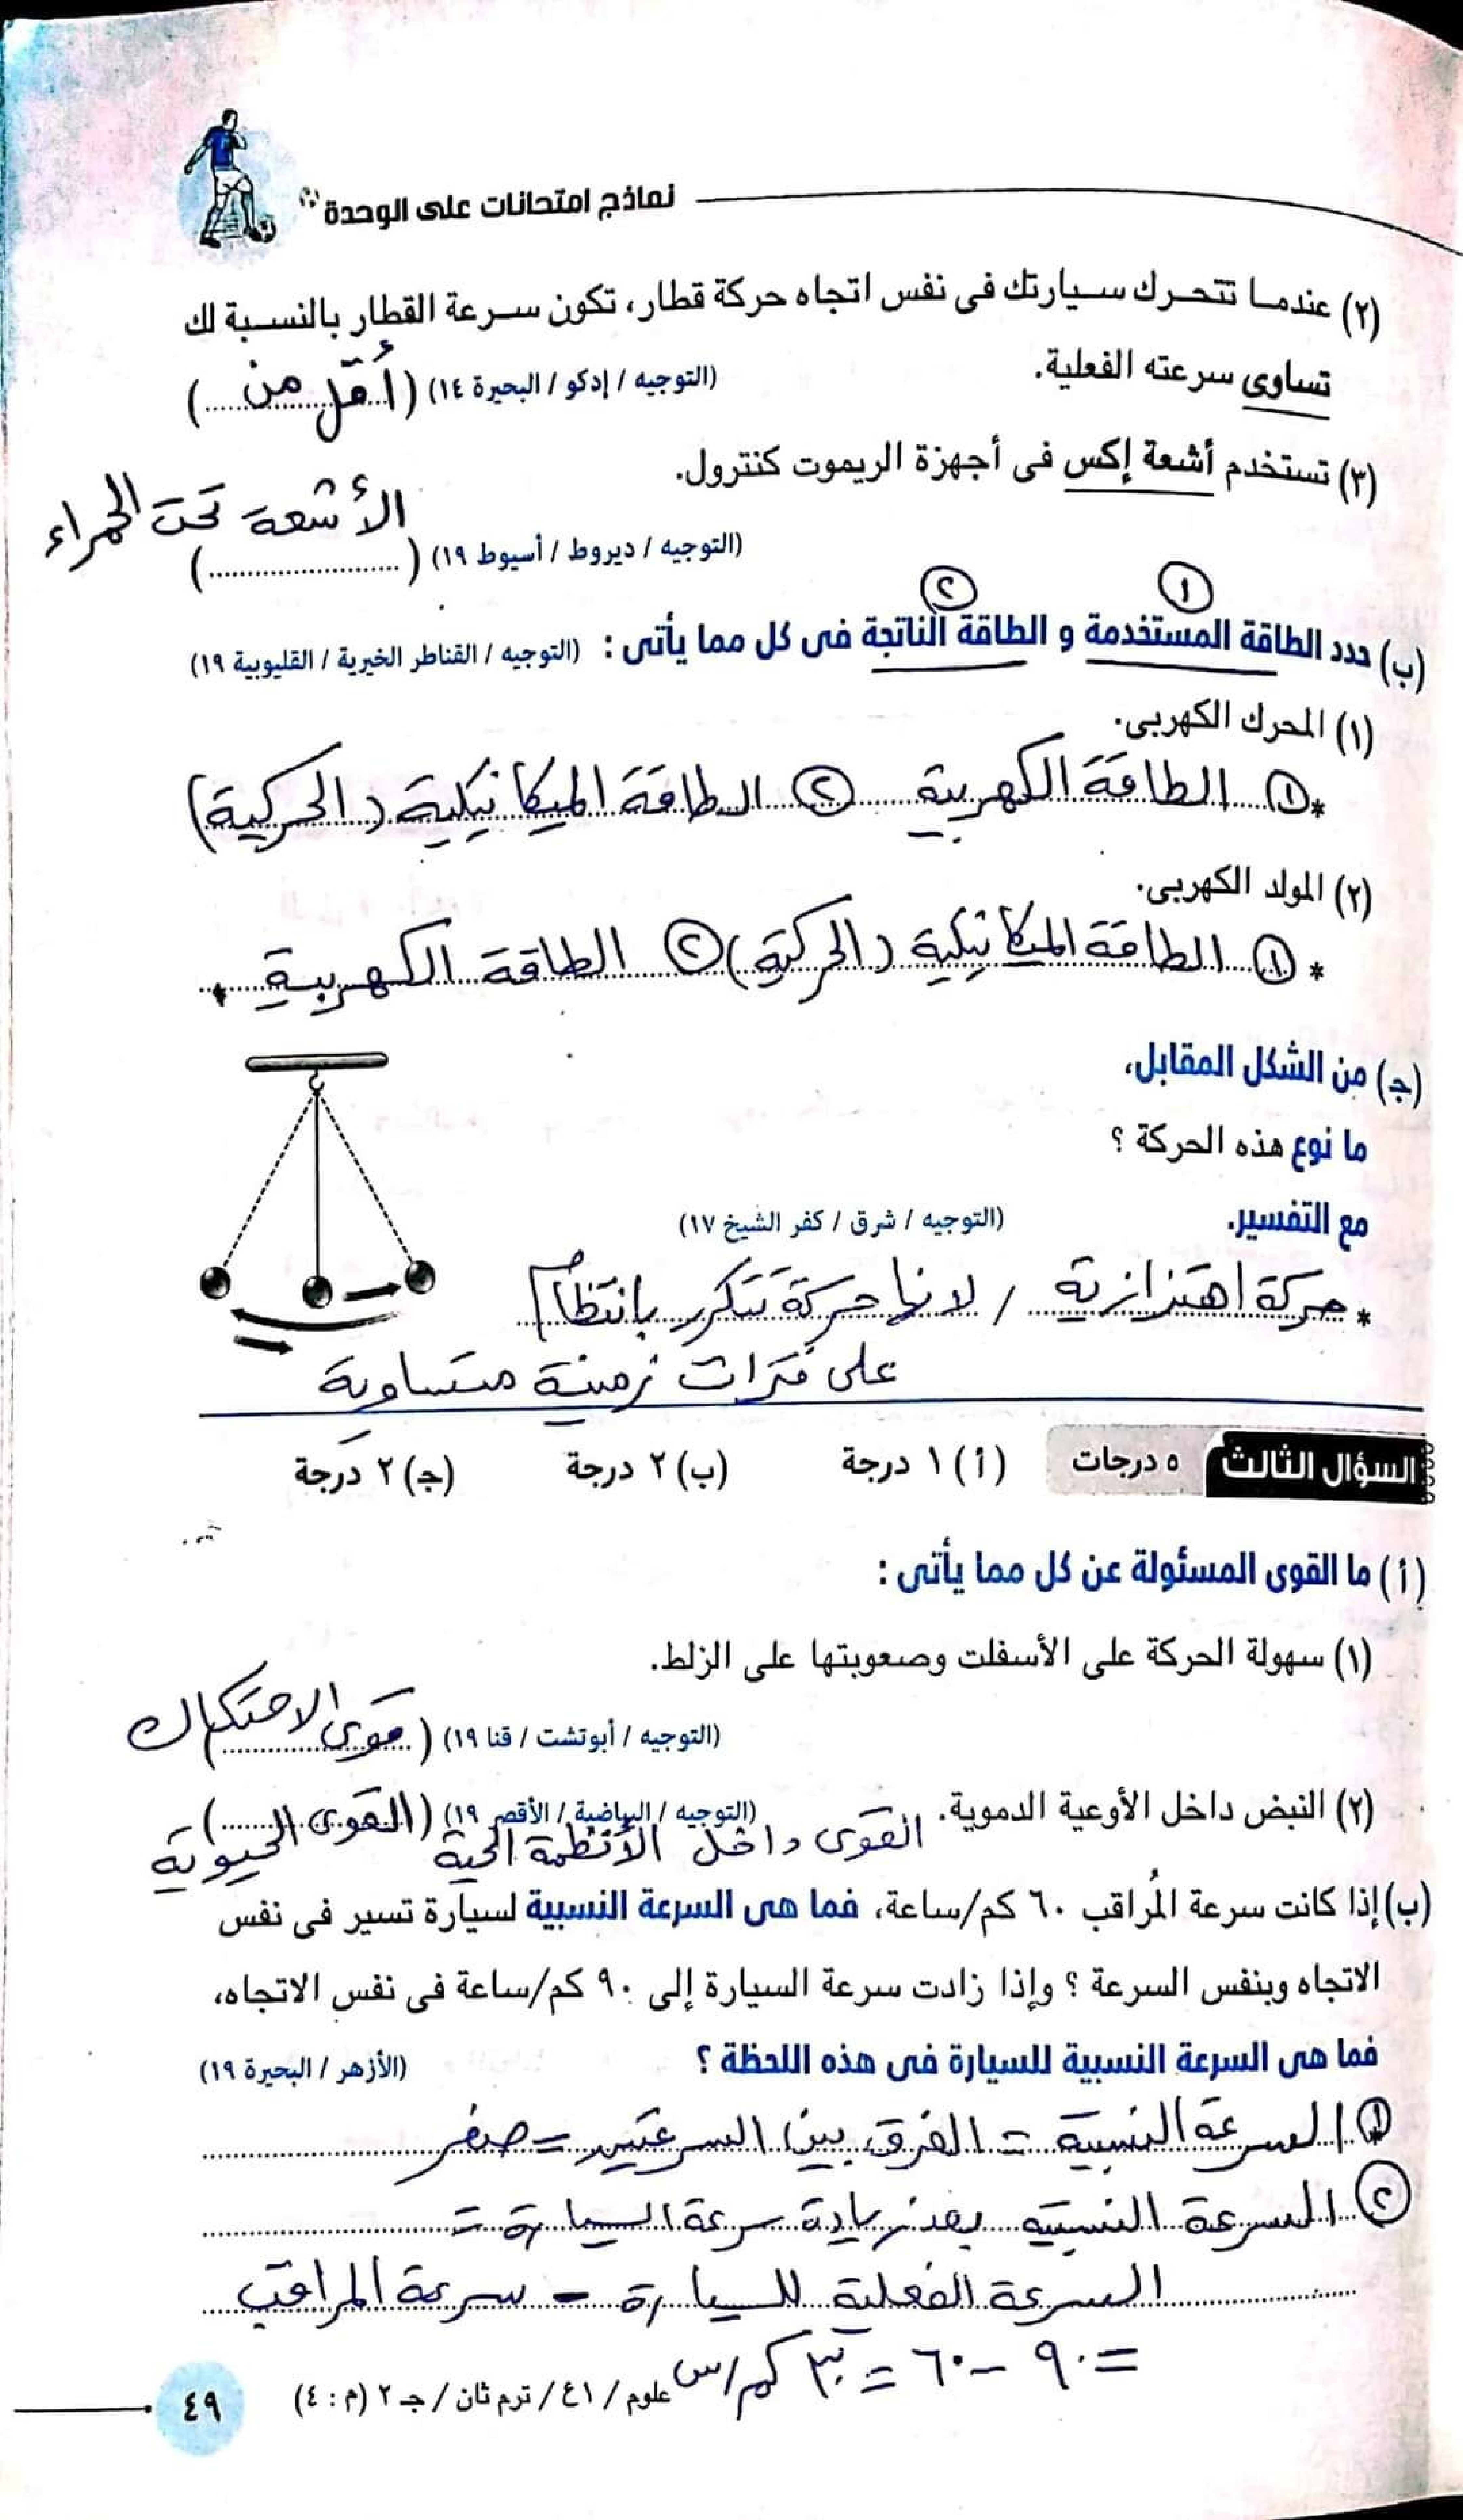 نماذج امتحانات على الوحدة
(٢) عندما تتحرك سيارتك فى نفس اتجاه حركة قطار، تكون سرعة القطار بالنسبة لك
تساوى سرعته الفعلية.
(التوجيه / إدكو / البحيرة ١٤) (أقل من)
(٣) تستخدم أشعة إكس فى أجهزة الريموت كنترول.
الأشعة تحت الحمراء
(التوجيه / ديروط / أسيوط ١٩) (..........)
١ ٢
(ب) حدد الطاقة المستخدمة و الطاقة الناتجة فى كل مما يأتى : (التوجيه / القناطر الخيرية / القليوبية ١٩)
(١) المحرك الكهربى.
* ١ الطاقة الكهربية ٢ الطاقة الميكانيكية (الحركية)
(٢) المولد الكهربى.
* ١ الطاقة الميكانيكية (الحركية) ٢ الطاقة الكهربية .
(جـ) من الشكل المقابل،
ما نوع هذه الحركة ؟
مع التفسير. (التوجيه / شرق / كفر الشيخ ١٧)
* حركة اهتزازية / لانها حركة تتكرر بانتظام
على فترات زمنية متساوية
السؤال الثالث ٥ درجات (أ) ١ درجة (ب) ٢ درجة (جـ) ٢ درجة
(أ) ما القوى المسئولة عن كل مما يأتى :
(١) سهولة الحركة على الأسفلت وصعوبتها على الزلط.
(التوجيه / أبوتشت / قنا ١٩) (قوى الاحتكاك)
(٢) النبض داخل الأوعية الدموية. (التوجيه / البياضية / الأقصر ١٩) (القوى الحيوية)
القوى داخل الأنظمة الحية
(ب) إذا كانت سرعة المُراقب ٦٠ كم/ساعة، فما هى السرعة النسبية لسيارة تسير فى نفس
الاتجاه وبنفس السرعة ؟ وإذا زادت سرعة السيارة إلى ٩٠ كم/ساعة فى نفس الاتجاه،
فما هى السرعة النسبية للسيارة فى هذه اللحظة ؟ (الأزهر / البحيرة ١٩)
١ السرعة النسبية = الفرق بين السرعتين = صفر
٢ السرعة النسبية بعد زيادة سرعة السيارة =
السرعة الفعلية للسيارة - سرعة المراقب
= ٩٠ - ٦٠ = ٣٠ كم/س
علوم / ١ع / ترم ثان / جـ ٢ (م : ٤)
٤٩